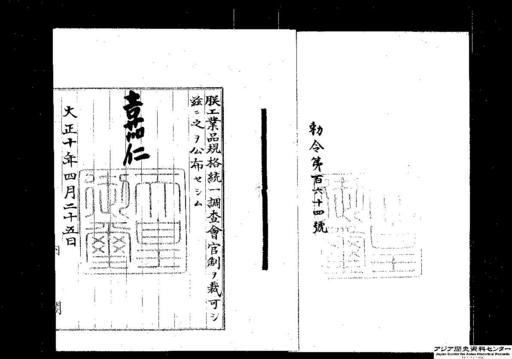 勅令第百六十四號
朕工業品規格統一調査會官制ヲ裁可シ
茲ニ之ヲ公布セシム
嘉仁
天皇御璽
大正十年四月二十五日
アジア歴史資料センター
Japan Center for Asian Historical Records